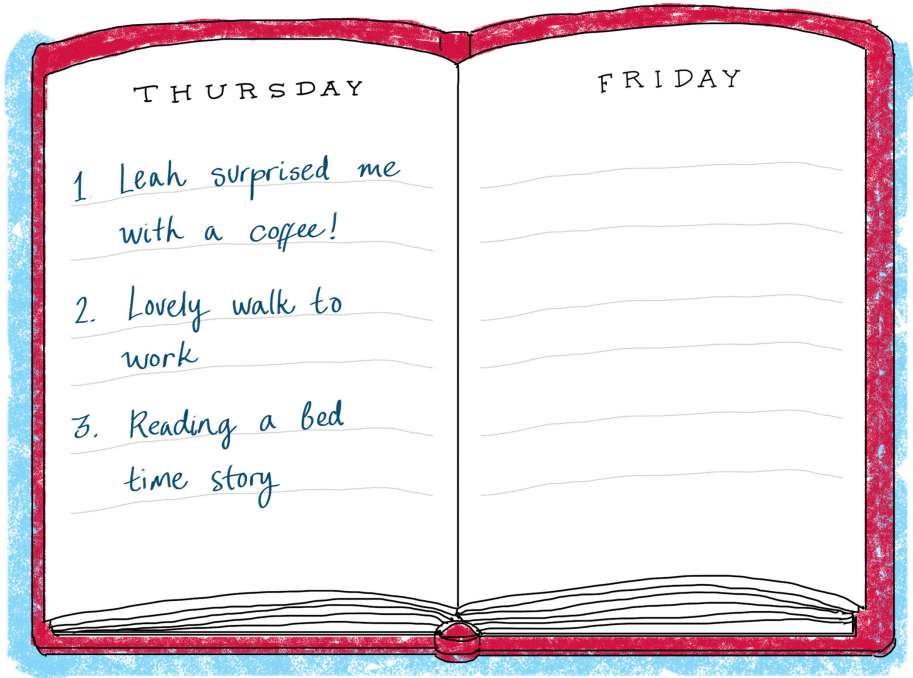 THURSDAY
1 Leah surprised me
with a coffee!
2. Lovely walk to
work
3. Reading a bed
time story
FRIDAY